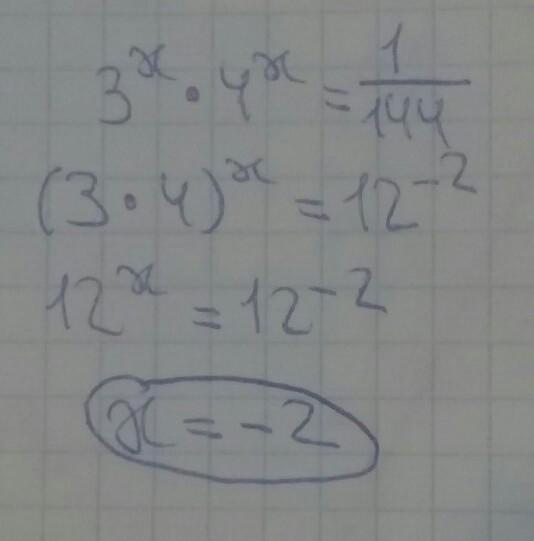 3^x · 4^x = 1/144
(3 · 4)^x = 12^-2
12^x = 12^-2
x = -2